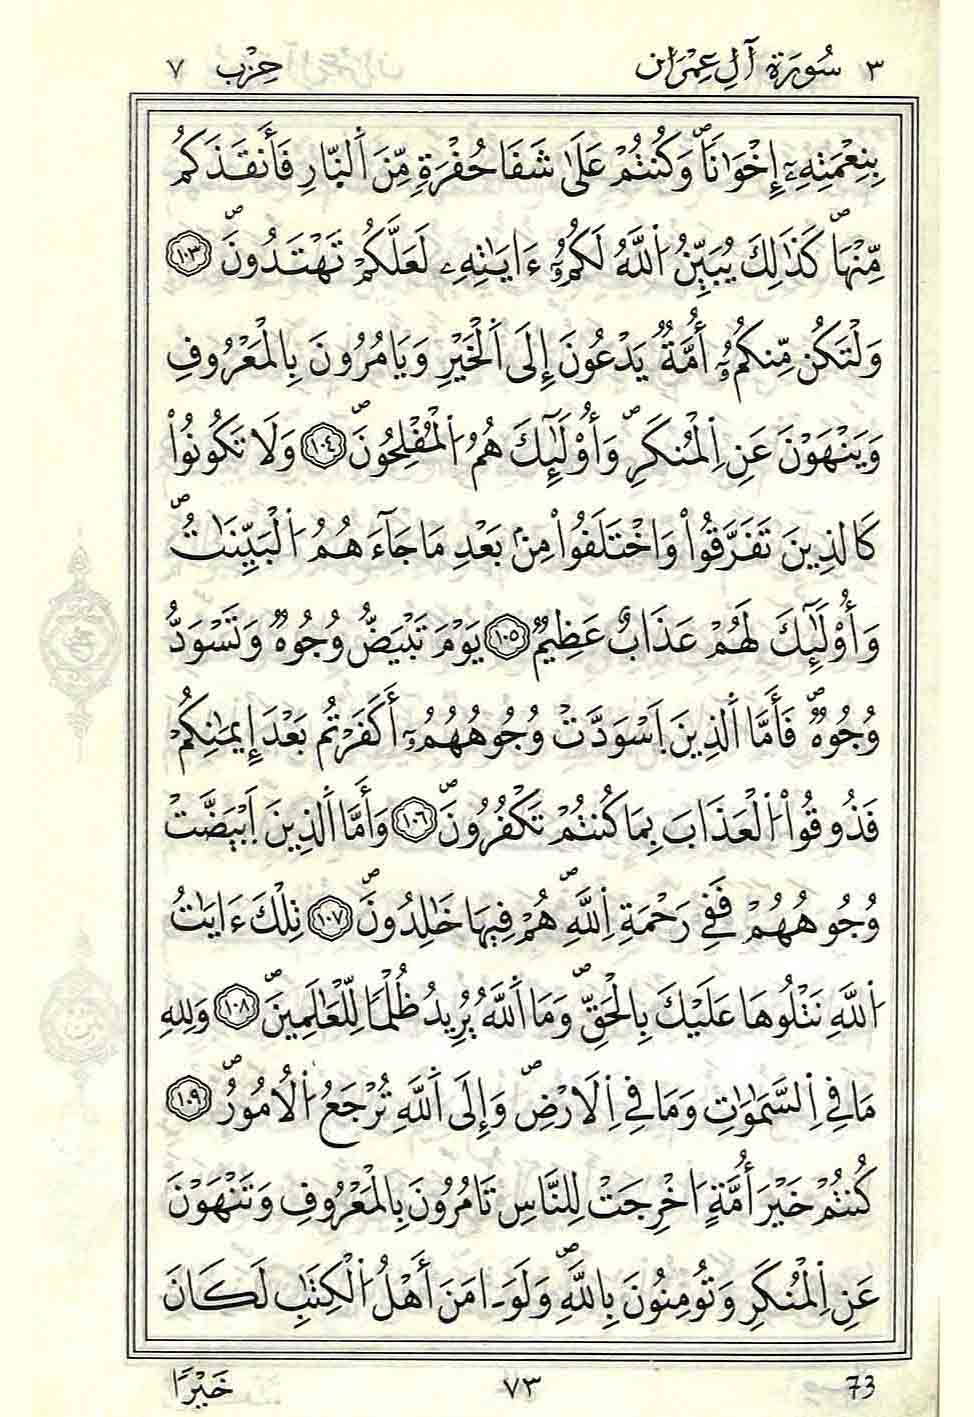 ٣ سُورَة آلِ عِمْرَان حِزْب ٧
بِنِعْمَتِهِۦٓ إِخْوَٰنٗاۖ وَكُنتُمْ عَلَىٰ شَفَا حُفْرَةٖ مِّنَ اَ۬لنّ۪ارِ فَأَنقَذَكُم
مِّنْهَاۖ كَذَٰلِكَ يُبَيِّنُ اُ۬للَّهُ لَكُمُۥٓ ءَايَٰتِهِۦ لَعَلَّكُمْ تَهْتَدُونَۖ ١٠٣
وَلْتَكُن مِّنكُمُۥٓ أُمَّةٞ يَدْعُونَ إِلَى اَ۬لْخَيْرِ وَيَامُرُونَ بِالْمَعْرُوفِ
وَيَنْهَوْنَ عَنِ اِ۬لْمُنكَرِۖ وَأُوْلَٰٓئِكَ هُمُ اُ۬لْمُفْلِحُونَۖ ١٠٤ وَلَا تَكُونُواْ
كَالذِينَ تَفَرَّقُواْ وَاخْتَلَفُواْ مِنۢ بَعْدِ مَا جَآءَهُمُ اُ۬لْبَيِّنَٰتُۖ
وَأُوْلَٰٓئِكَ لَهُمْ عَذَابٌ عَظِيمٞ ١٠٥ يَوْمَ تَبْيَضُّ وُجُوهٞ وَتَسْوَدُّ
وُجُوهٞۖ فَأَمَّا اَ۬لذِينَ اَ۪سْوَدَّتْ وُجُوهُهُمُۥٓ أَكَفَرْتُم بَعْدَ إِيمَٰنِكُمْ
فَذُوقُواْ اُ۬لْعَذَابَ بِمَا كُنتُمْ تَكْفُرُونَۖ ١٠٦ وَأَمَّا اَ۬لذِينَ اَ۪بْيَضَّتْ
وُجُوهُهُمْ فَفِے رَحْمَةِ اِ۬للَّهِۖ هُمْ فِيهَا خَٰلِدُونَۖ ١٠٧ تِلْكَ ءَايَٰتُ
اُ۬للَّهِ نَتْلُوهَا عَلَيْكَ بِالْحَقِّۖ وَمَا اَ۬للَّهُ يُرِيدُ ظُلْماٗ لِّلْعَٰلَمِينَۖ ١٠٨ وَلِلهِ
مَا فِے اِ۬لسَّمَٰوَٰتِ وَمَا فِے اِ۬لَارْضِۖ وَإِلَى اَ۬للَّهِ تُرْجَعُ اُ۬لُامُورُۖ ١٠٩
كُنتُمْ خَيْرَ أُمَّةٍ ا۟خْرِجَتْ لِلنَّاسِ تَامُرُونَ بِالْمَعْرُوفِ وَتَنْهَوْنَ
عَنِ اِ۬لْمُنكَرِ وَتُومِنُونَ بِاللَّهِۖ وَلَوَ اٰمَنَ أَهْلُ اُ۬لْكِتَٰبِ لَكَانَ
خَيْرًا ٧٣ 73